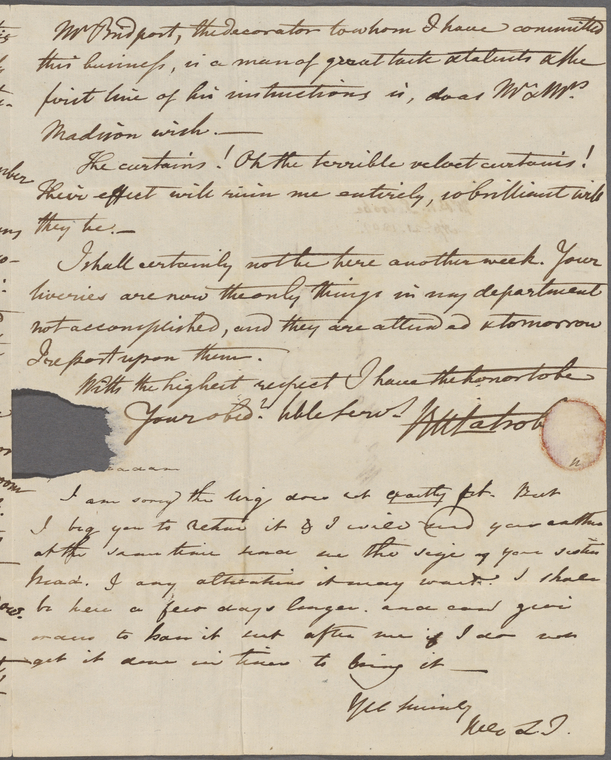 Mr Bridport, the decorator to whom I have committed
this business, is a man of great taste & talents & the
first line of his instructions is, do as Mr & Mrs
Madison wish.—
The curtains! Oh the terrible velvet curtains!
Their effect will ruin me entirely, so brilliant will
they be.—
I shall certainly not be here another week. Your
liveries are now the only things in my department
not accomplished, and they are attended & tomorrow
I report upon them.
With the highest respect I have the honor to be
Your obedt. hble Servt.
BHLatrobe
I am sorry the wig does not exactly fit. But
I beg you to return it & I will send
at the same time send me the size of your sisters
head. I any alterations it may want. I shall
be here a few days longer. and can give
orders to have it sent after me if I do not
get it done in time to bring it —